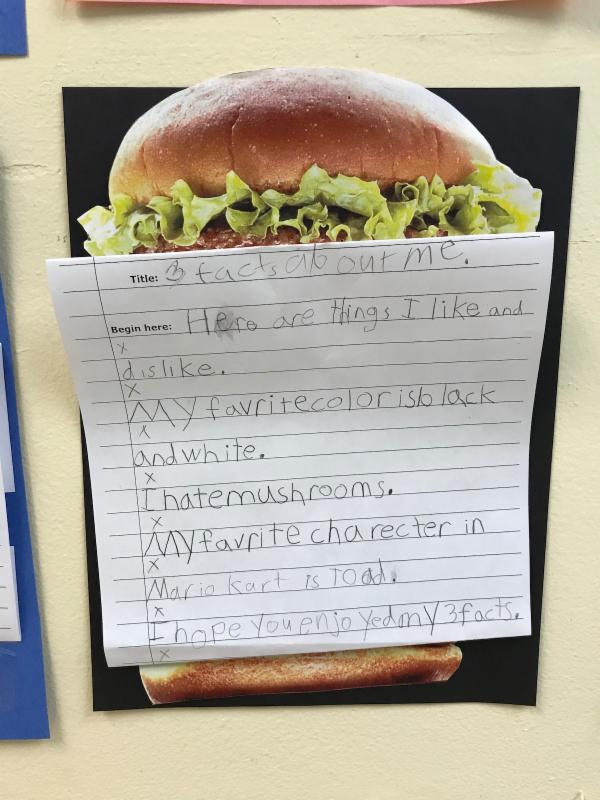 Title: 3 facts about me.
Begin here: Here are things I like and
x
dislike.
x
My favrite color is black
x
and white.
x
I hate mushrooms.
x
My favrite charecter in
x
Mario Kart is Toad.
x
I hope you enjoyed my 3 facts.
x